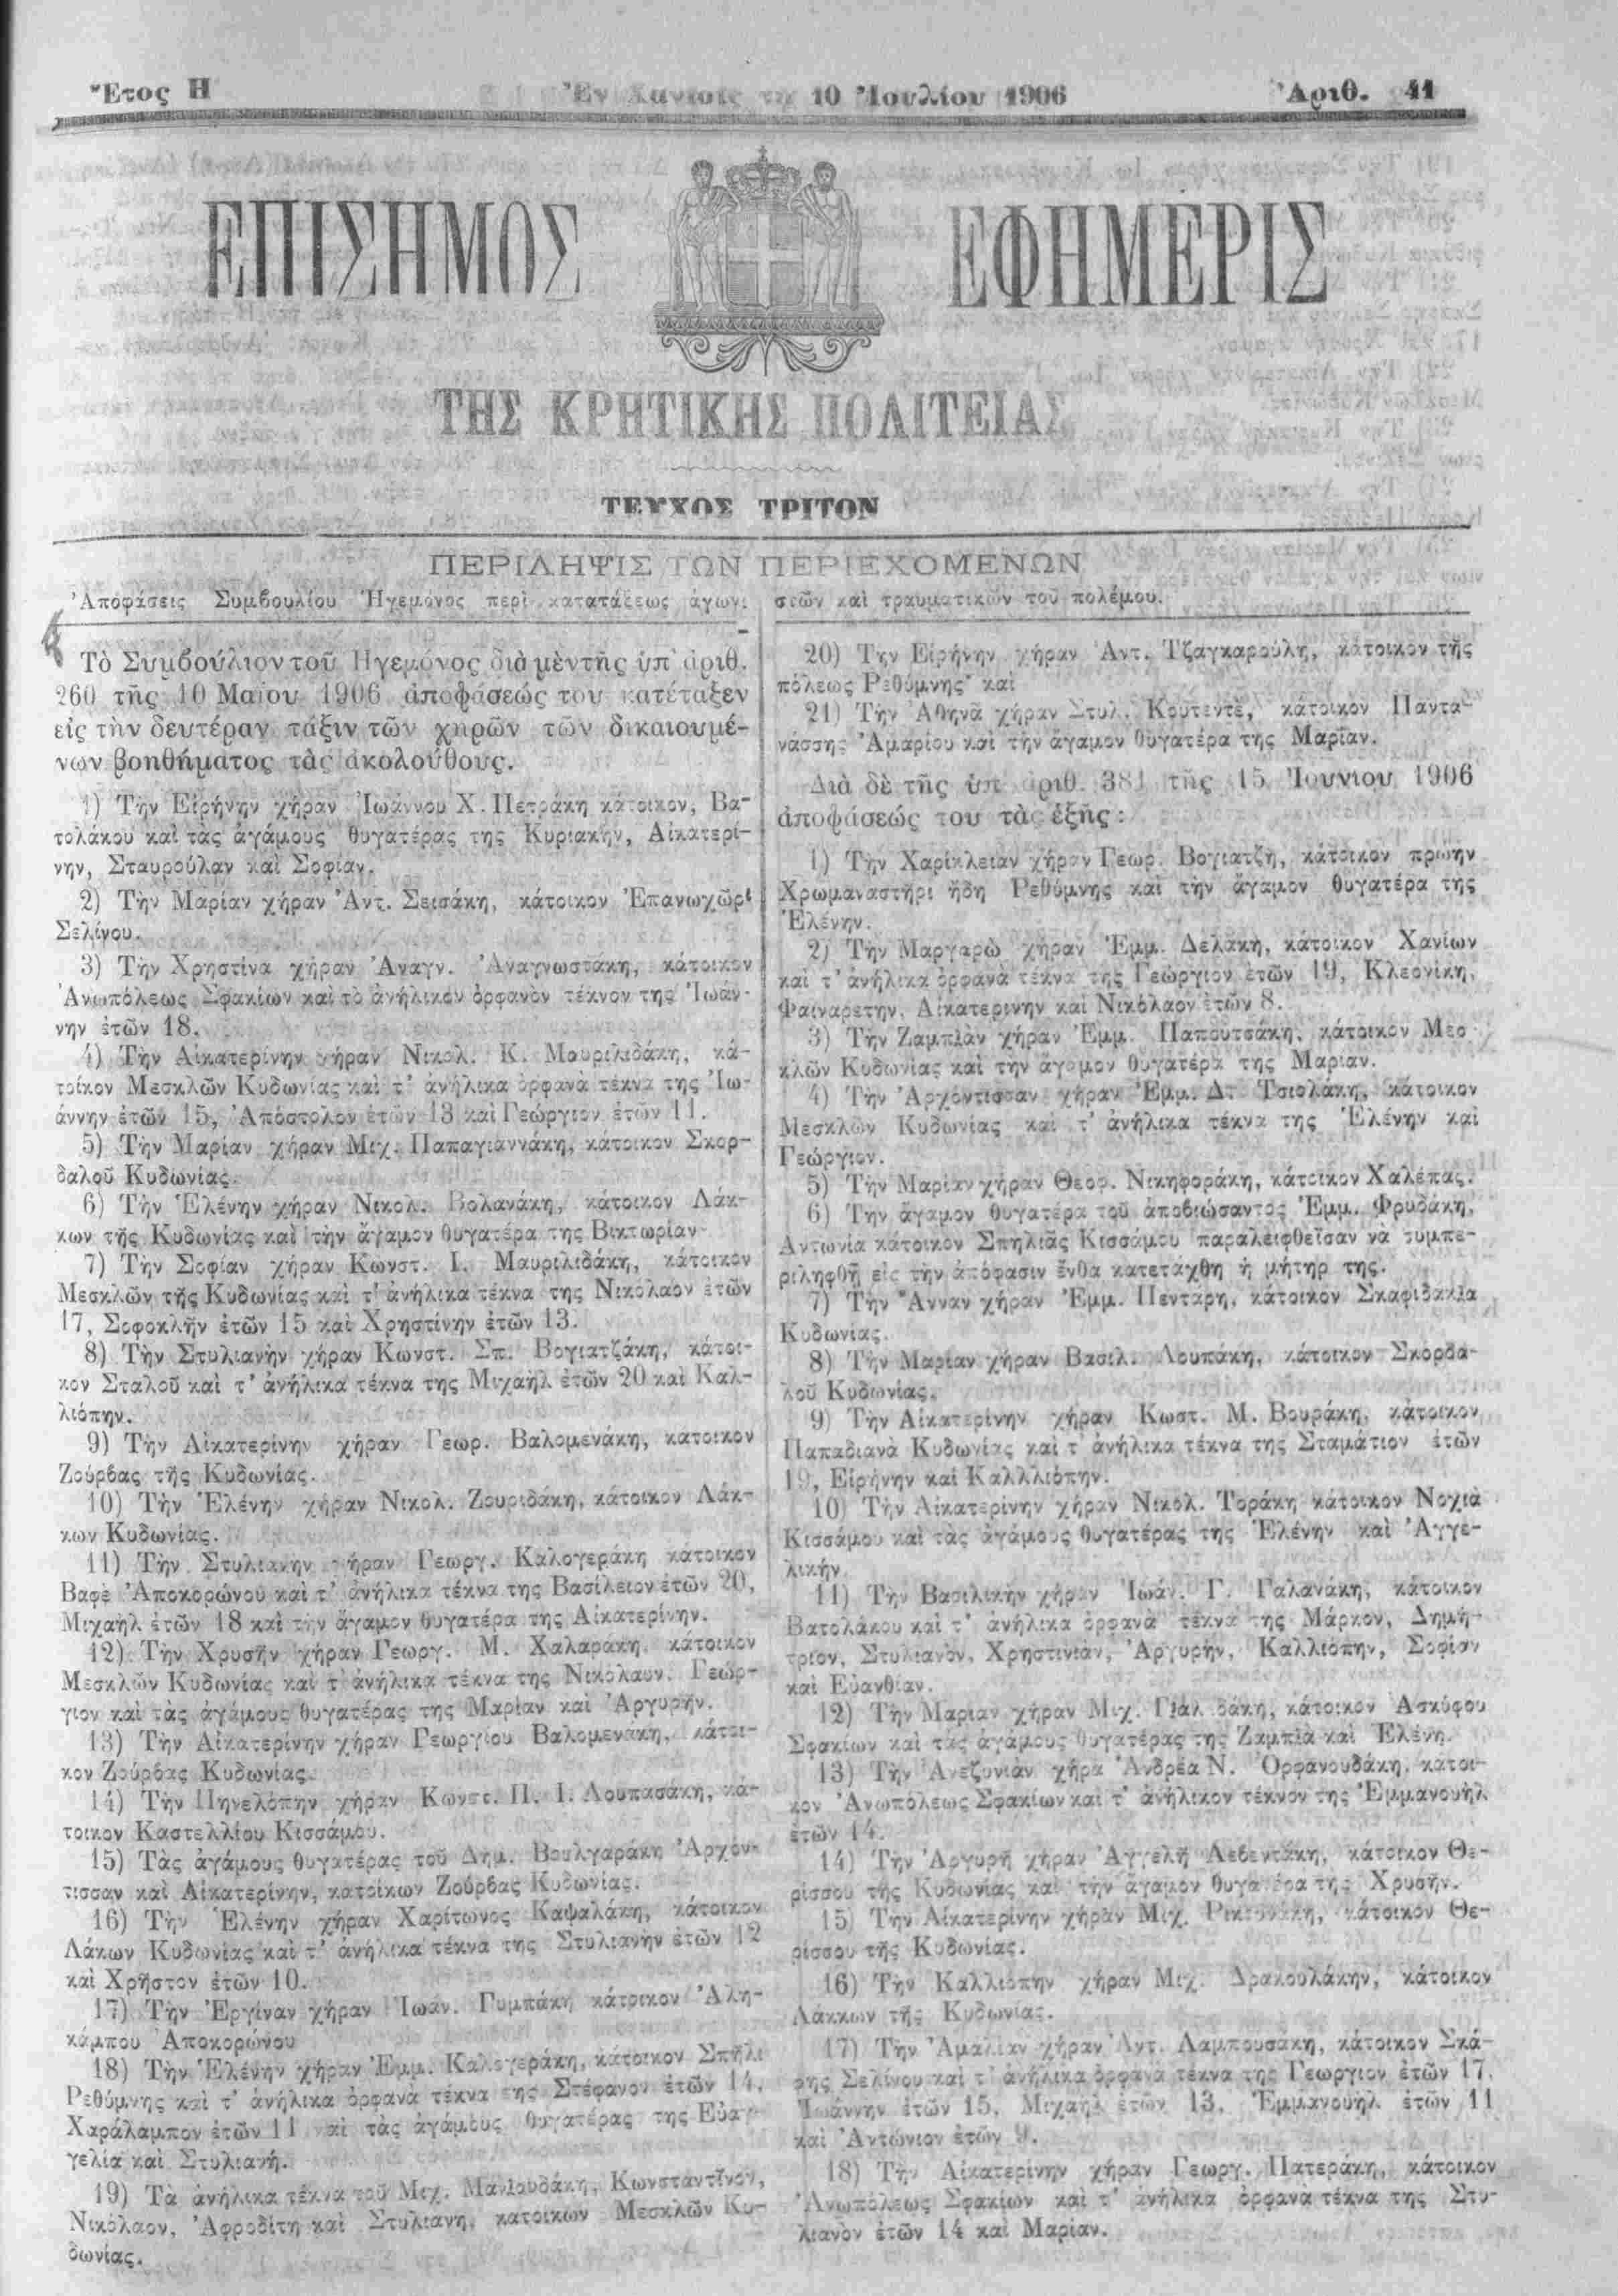 Ἔτος Η
Ἐν Χανίοις τῇ 10 Ἰουλίου 1906
Ἀριθ. 41
ΕΠΙΣΗΜΟΣ ΕΦΗΜΕΡΙΣ
ΤΗΣ ΚΡΗΤΙΚΗΣ ΠΟΛΙΤΕΙΑΣ
ΤΕΥΧΟΣ ΤΡΙΤΟΝ
ΠΕΡΙΛΗΨΙΣ ΤΩΝ ΠΕΡΙΕΧΟΜΕΝΩΝ
Ἀποφάσεις Συμβουλίου Ἡγεμόνος περὶ κατατάξεως ἀγωνι
στῶν καὶ τραυματικῶν τοῦ πολέμου.
Τὸ Συμβούλιον τοῦ Ἡγεμόνος διὰ μὲν τῆς ὑπ' ἀριθ.
260 τῆς 10 Μαΐου 1906 ἀποφάσεώς του κατέταξεν
εἰς τὴν δευτέραν τάξιν τῶν χηρῶν τῶν δικαιουμέ-
νων βοηθήματος τὰς ἀκολούθους.
1) Τὴν Εἰρήνην χήραν Ἰωάννου Χ. Πετράκη κάτοικον, Βα-
τολάκου καὶ τὰς ἀγάμους θυγατέρας της Κυριακὴν, Αἰκατερί-
νην, Σταυρούλαν καὶ Σοφίαν.
2) Τὴν Μαρίαν χήραν Ἀντ. Σεισάκη, κάτοικον Ἐπανωχῶρι
Σελίνου.
3) Τὴν Χρηστίνα χήραν Ἀναγν. Ἀναγνωστάκη, κάτοικον
Ἀνωπόλεως Σφακίων καὶ τὸ ἀνήλικον ὀρφανὸν τέκνον της Ἰωάν-
νην ἐτῶν 18.
4) Τὴν Αἰκατερίνην χήραν Νικολ. Κ. Μαυριλιδάκη, κά-
τοικον Μεσκλῶν Κυδωνίας καὶ τ' ἀνήλικα ὀρφανὰ τέκνα της Ἰω-
άννην ἐτῶν 15, Ἀπόστολον ἐτῶν 13 καὶ Γεώργιον ἐτῶν 11.
5) Τὴν Μαρίαν χήραν Μιχ. Παπαγιαννάκη, κάτοικον Σκορ-
δαλοῦ Κυδωνίας.
6) Τὴν Ἑλένην χήραν Νικολ. Βολανάκη, κάτοικον Λάκ-
κων τῆς Κυδωνίας καὶ τὴν ἄγαμον θυγατέρα της Βικτωρίαν
7) Τὴν Σοφίαν χήραν Κωνστ. Ι. Μαυριλιδάκη, κάτοικον
Μεσκλῶν τῆς Κυδωνίας καὶ τ' ἀνήλικα τέκνα της Νικόλαον ἐτῶν
17, Σοφοκλῆν ἐτῶν 15 καὶ Χρηστίνην ἐτῶν 13.
8) Τὴν Στυλιανὴν χήραν Κωνστ. Σπ. Βογιατζάκη, κάτοι-
κον Σταλοῦ καὶ τ' ἀνήλικα τέκνα της Μιχαὴλ ἐτῶν 20 καὶ Καλ-
λιόπην.
9) Τὴν Αἰκατερίνην χήραν Γεωρ. Βαλομενάκη, κάτοικον
Ζούρβας τῆς Κυδωνίας.
10) Τὴν Ἑλένην χήραν Νικολ. Ζουριδάκη, κάτοικον Λάκ-
κων Κυδωνίας.
11) Τὴν Στυλιανὴν χήραν Γεωργ. Καλογεράκη κάτοικον
Βαφὲ Ἀποκορώνου καὶ τ' ἀνήλικα τέκνα της Βασίλειον ἐτῶν 20,
Μιχαὴλ ἐτῶν 18 καὶ τὴν ἄγαμον θυγατέρα της Αἰκατερίνην.
12) Τὴν Χρυσῆν χήραν Γεωργ. Μ. Χαλαράκη κάτοικον
Μεσκλῶν Κυδωνίας καὶ τ' ἀνήλικα τέκνα της Νικόλαον, Γεώρ-
γιον καὶ τὰς ἀγάμους θυγατέρας της Μαρίαν καὶ Ἀργυρῆν.
13) Τὴν Αἰκατερίνην χήραν Γεωργίου Βαλομενάκη, κάτοι-
κον Ζούρβας Κυδωνίας.
14) Τὴν Πηνελόπην χήραν Κωνστ. Π. Ι. Λουπασάκη, κά-
τοικον Καστελλίου Κισσάμου.
15) Τὰς ἀγάμους θυγατέρας τοῦ Δημ. Βουλγαράκη Ἀρχόν-
τισσαν καὶ Αἰκατερίνην, κατοίκων Ζούρβας Κυδωνίας.
16) Τὴν Ἑλένην χήραν Χαρίτωνος Καψαλάκη, κάτοικον
Λάκων Κυδωνίας καὶ τ' ἀνήλικα τέκνα της Στυλιανὴν ἐτῶν 12
καὶ Χρῆστον ἐτῶν 10.
17) Τὴν Ἐργίναν χήραν Ἰωάν. Γυμπάκη κάτοικον Ἀλη-
κάμπου Ἀποκορώνου
18) Τὴν Ἑλένην χήραν Ἐμμ. Καλογεράκη, κάτοικον Σπήλι
Ρεθύμνης καὶ τ' ἀνήλικα ὀρφανὰ τέκνα της Στέφανον ἐτῶν 14,
Χαράλαμπον ἐτῶν 11 καὶ τὰς ἀγάμους θυγατέρας της Εὐαγ
γελία καὶ Στυλιανή.
19) Τὰ ἀνήλικα τέκνα τοῦ Μιχ. Μανουδάκη, Κωνσταντῖνον,
Νικόλαον, Ἀφροδίτη καὶ Στυλιανη, κατοίκων Μεσκλῶν Κυ-
δωνίας.
20) Τὴν Εἰρήνην χήραν Ἀντ. Τζαγκαρούλη, κάτοικον τῆς
πόλεως Ρεθύμνης καὶ
21) Τὴν Ἀθηνᾶ χήραν Στυλ. Κουτεντὲ, κάτοικον Παντα
νάσσης Ἀμαρίου καὶ τὴν ἄγαμον θυγατέρα της Μαρίαν.
Διὰ δὲ τῆς ὑπ ἀριθ. 381 τῆς 15 Ἰουνίου 1906
ἀποφάσεώς του τὰς ἑξῆς:
1) Τὴν Χαρίκλειαν χήραν Γεωρ. Βογιατζῆ, κάτοικον πρώην
Χρωμαναστήρι ἤδη Ρεθύμνης καὶ τὴν ἄγαμον θυγατέρα της
Ἑλένην.
2) Τὴν Μαργαρὼ χήραν Ἐμμ. Δελάκη, κάτοικον Χανίων
καὶ τ' ἀνήλικα ὀρφανὰ τέκνα της Γεώργιον ἐτῶν 19, Κλεονίκη,
Φαιναρέτην, Αἰκατερίνην καὶ Νικόλαον ἐτῶν 8.
3) Τὴν Ζαμπιὰν χήραν Ἐμμ. Παπουτσάκη, κάτοικον Μεσ
κλῶν Κυδωνίας καὶ τὴν ἄγαμον θυγατέρα της Μαρίαν.
4) Τὴν Ἀρχόντισσαν χήραν Ἐμμ. Δ. Τσιολάκη, κάτοικον
Μεσκλῶν Κυδωνίας καὶ τ' ἀνήλικα τέκνα της Ἑλένην καὶ
Γεώργιον.
5) Τὴν Μαρίαν χήραν Θεοφ. Νικηφοράκη, κάτοικον Χαλέπας.
6) Τὴν ἄγαμον θυγατέρα τοῦ ἀποβιώσαντος Ἐμμ. Φρυδάκη,
Ἀντωνία κάτοικον Σπηλιᾶς Κισσάμου παραλειφθεῖσαν νὰ συμπε-
ριληφθῇ εἰς τὴν ἀπόφασιν ἔνθα κατετάχθη ἡ μήτηρ της.
7) Τὴν Ἄνναν χήραν Ἐμμ. Πεντάρη, κάτοικον Σκαφιδακια
Κυδωνίας.
8) Τὴν Μαρίαν χήραν Βασιλ. Λουπάκη, κάτοικον Σκορδα-
λοῦ Κυδωνίας.
9) Τὴν Αἰκατερίνην χήραν Κωστ. Μ. Βουράκη, κάτοικον
Παπαδιανὰ Κυδωνίας καὶ τ' ἀνήλικα τέκνα της Σταμάτιον ἐτῶν
19, Εἰρήνην καὶ Καλλλιόπην.
10) Τὴν Αἰκατερίνην χήραν Νικολ. Τοράκη κάτοικον Νοχιὰ
Κισσάμου καὶ τὰς ἀγάμους θυγατέρας της Ἑλένην καὶ Ἀγγε-
λικήν
11) Τὴν Βασιλικὴν χήραν Ἰωάν. Γ. Γαλανάκη, κάτοικον
Βατολάκου καὶ τ' ἀνήλικα ὀρφανὰ τέκνα της Μάρκον, Δημή-
τριον, Στυλιανὸν, Χρηστινιὰν, Ἀργυρῆν, Καλλιόπην, Σοφίαν
καὶ Εὐανθίαν.
12) Τὴν Μαρίαν χήραν Μιχ. δάκη, κάτοικον Ἀσκύφου
Σφακίων καὶ τὰς ἀγάμους θυγατέρας της Ζαμπιὰ καὶ Ἑλένη.
13) Τὴν Ἀνεζυνιὰν χήρα Ἀνδρέα Ν. Ὀρφανουδάκη, κάτοι-
κον Ἀνωπόλεως Σφακίων καὶ τ' ἀνήλικον τέκνον της Ἐμμανουὴλ
ἐτῶν 14.
14) Τὴν Ἀργυρῆ χήραν Ἀγγελῆ Λεβεντάκη, κάτοικον Θε-
ρίσσου τῆς Κυδωνίας καὶ τὴν ἄγαμον θυγατέρα της Χρυσῆν.
15) Τὴν Αἰκατερίνην χήραν Μιχ. κάτοικον Θε-
ρίσσου τῆς Κυδωνίας.
16) Τὴν Καλλιόπην χήραν Μιχ. Δρακουλάκην, κάτοικον
Λάκκων τῆς Κυδωνίας.
17) Τὴν Ἀμαλίαν χήραν Ἀντ. Λαμπουσάκη, κάτοικον Σκά-
φης Σελίνου καὶ τ' ἀνήλικα ὀρφανὰ τέκνα της Γεώργιον ἐτῶν 17,
Ἰωάννην ἐτῶν 15, Μιχαὴλ ἐτῶν 13, Ἐμμανουὴλ ἐτῶν 11
καὶ Ἀντώνιον ἐτῶν 9.
18) Τὴν Αἰκατερίνην χήραν Γεωργ. Πατεράκη, κάτοικον
Ἀνωπόλεως Σφακίων καὶ τ' ἀνήλικα ὀρφανὰ τέκνα της Στυ-
λιανὸν ἐτῶν 14 καὶ Μαρίαν.